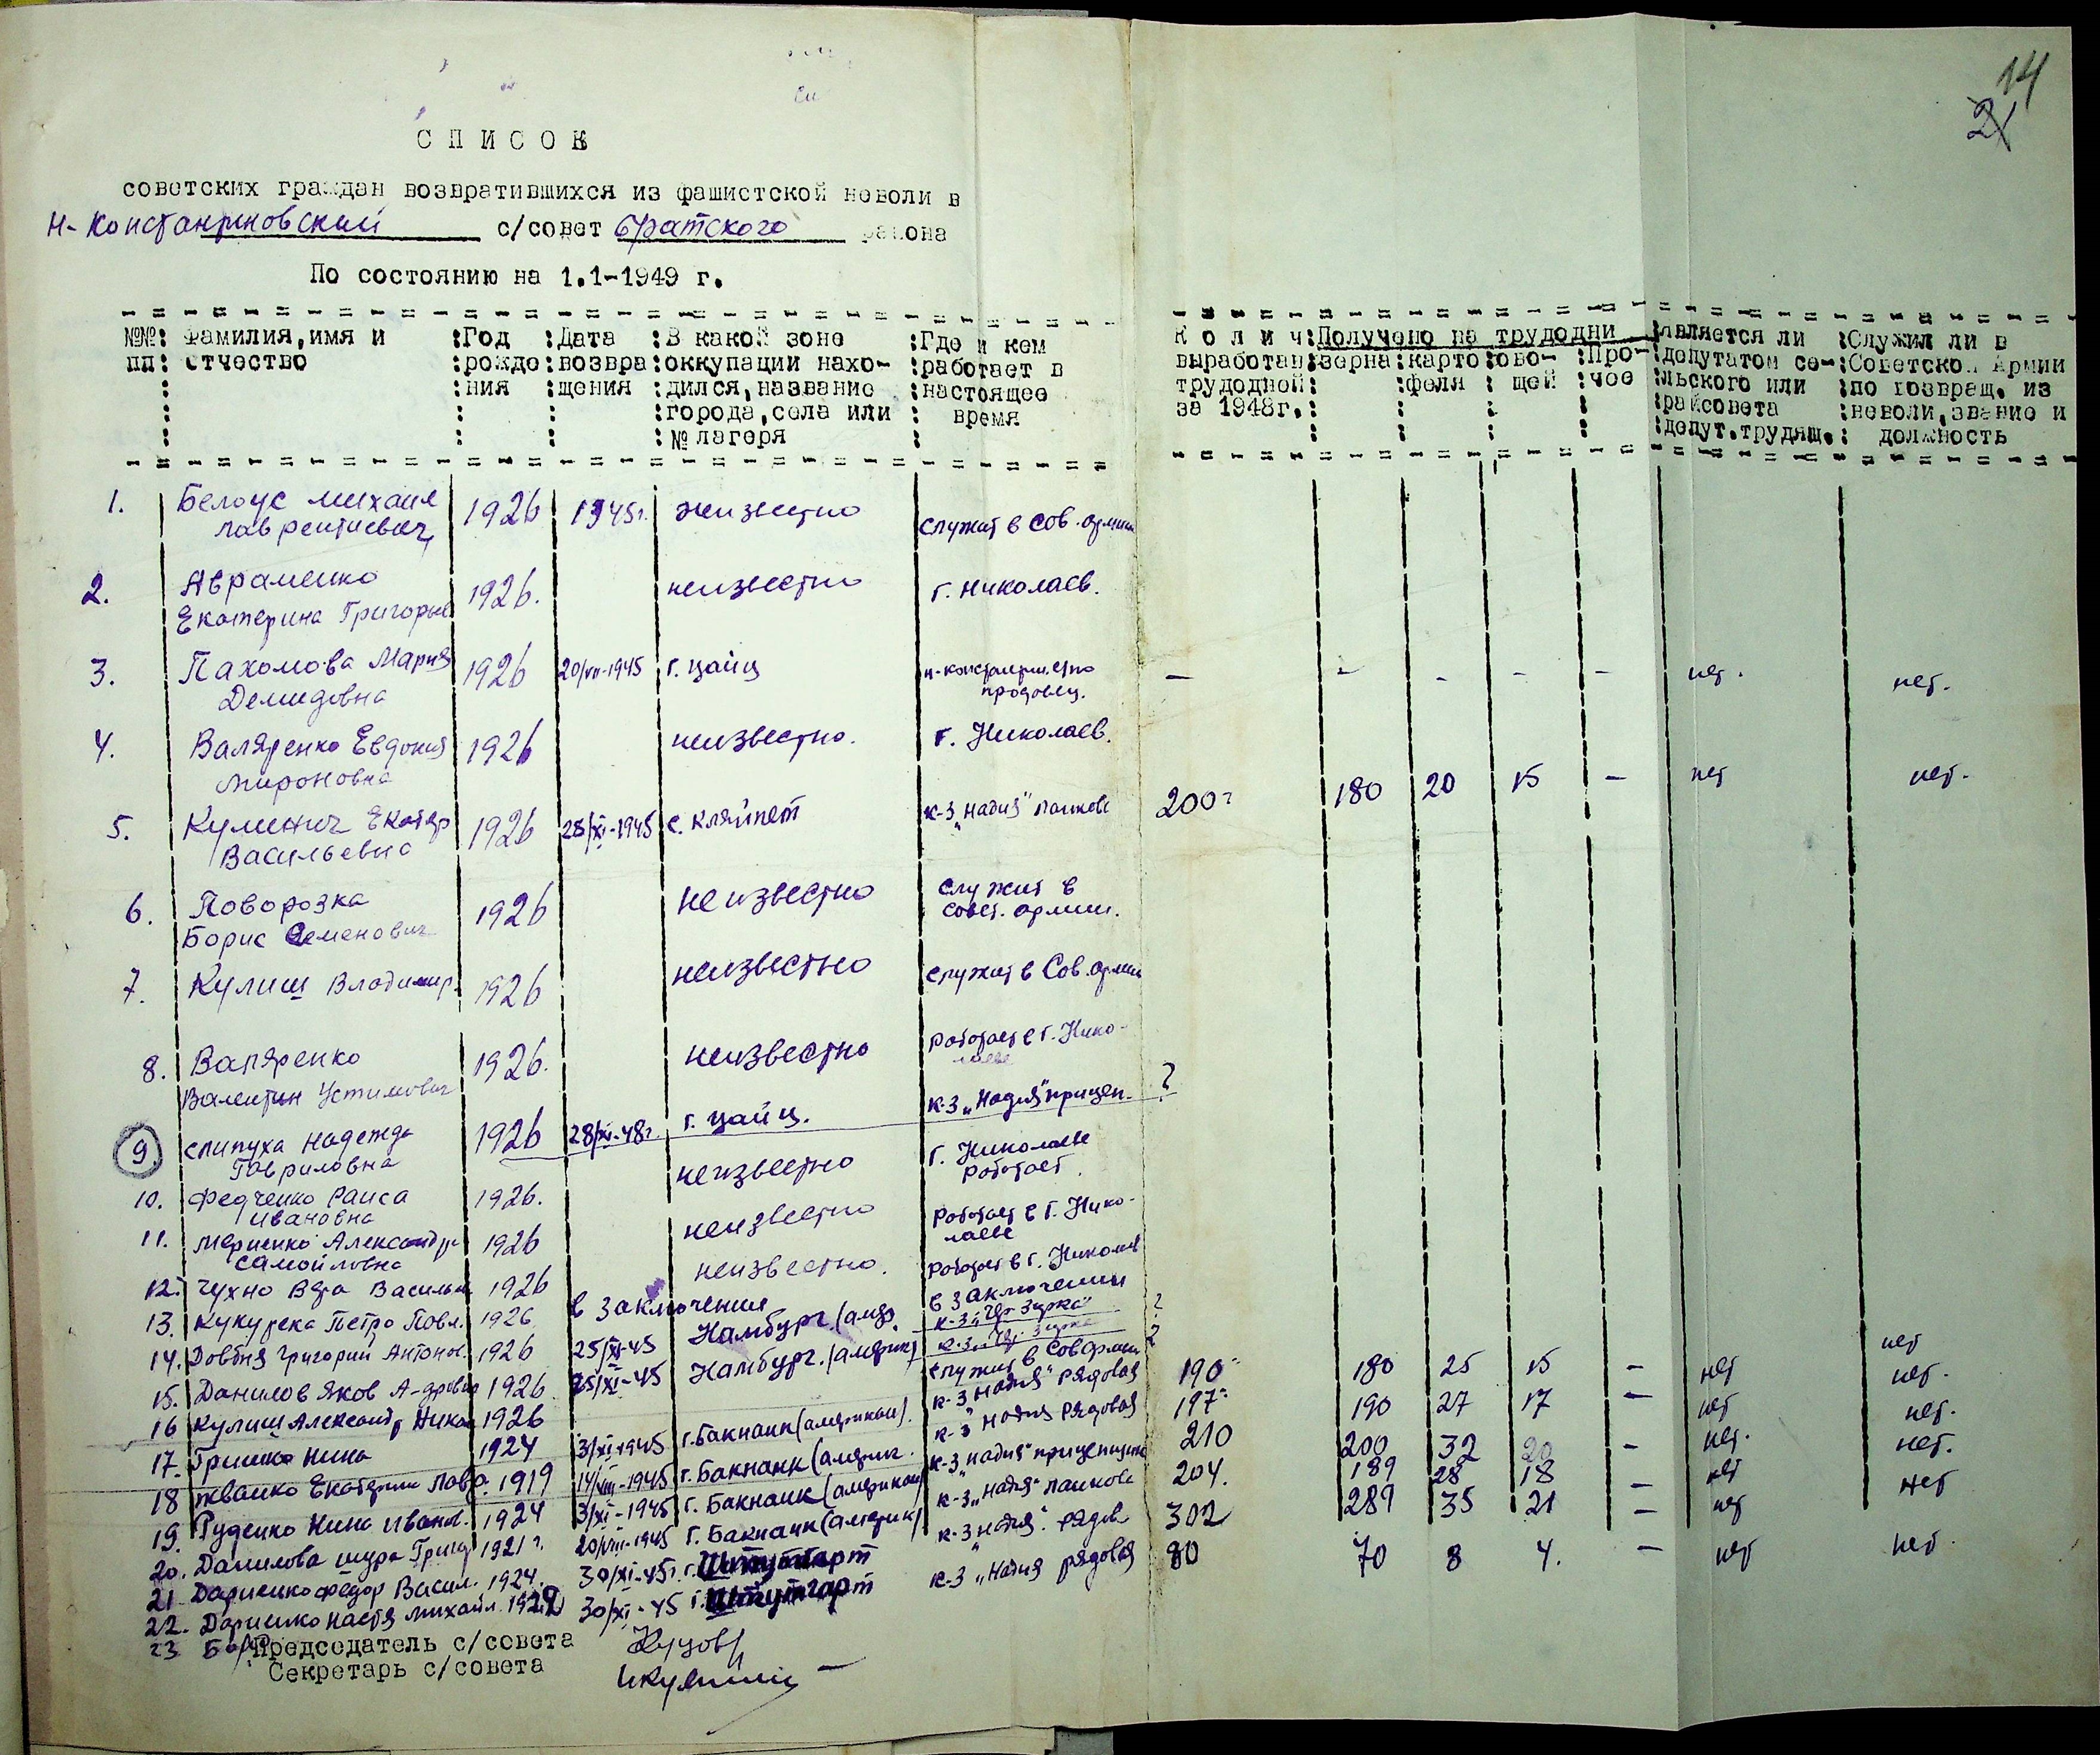 14
21
СПИСОК
советских граждан возвратившихся из фашистской неволи в
Н-Константиновский с/совет братского района
По состоянию на 1.1-1949 г.
№№ пп : Фамилия, имя и отчество : Год рождения : Дата возвращения : В какой зоне оккупации находился, название города, села или № лагеря : Где и кем работает в настоящее время : Колич выработан трудодней за 1948г. : Получено на трудодни : зерна : картофеля : овощей : Прочее : Является ли депутатом сельского или райсовета депут. трудящ. : Служил ли в Советской Армии по возвращ. из неволи, звание и должность
1. Белоус Михаил Лаврентиевич 1926 1945г. неизвестно служит в Сов. армии
2. Авраменко Екатерина Григорьев 1926. неизвестно г. Николаев.
3. Пахомова Мария Демидовна 1926 20/VII-1945 г. Цайц продовец. - - - - - нет. нет.
4. Валяренко Евдокия Мироновна 1926 неизвестно. г. Николаев.
5. Кулинич Екатер Васильевна 1926 28/XI-1945 с. Кляйпет к-з "Надия" ланкова 200 180 20 15 - нет нет.
6. Поворозка Борис Семенович 1926 неизвестно служит в совет. армии.
7. Кулиш Владимир. 1926 неизвестно служит в Сов. армии
8. Валяренко Валентин Устимович 1926. неизвестно работает в г. Николаеве
9 Слипуха Надежда Гавриловна 1926 28/XI-48г. г. Цайц. к-з "Надия" прицеп. ?
10. Федченко Раиса Ивановна 1926. неизвестно г. Николаеве работает.
11. Александра Самойловна 1926 неизвестно работает в г. Николаеве
12. Чухно Вера Васильев 1926 неизвестно. работает в г. Николаев
13. Кукурека Петро Павл. 1926. в заключении в заключении
14. Довбня Григорий Антонов. 1926 25/XI-45 Намбург. к-з "Чер. Зирка" ?
15. Данилов Яков 1926 25/XI-45 Намбург. (америк) к-з "Чер. Зирка" ?
16 Кулиш Александр Никол 1926 служит в Сов армии нет
17. Гришко Нина 1924 3/XI-1945 г. Бакнанк (американ). к-з "Надия" рядовая 190 180 25 15 - нет нет.
18 Екатерина Павл. 1919 14/VIII-1945 г. Бакнанк (америк. к-з Надия рядовая 197 190 27 17 - нет нет.
19. Руденко Нина Иванов. 1924 3/XI-1945 г. Бакнанк (американ) к-з "Надия" прицепщик 210 200 32 20 - нет. нет.
20. Данилова Шура Григ 1921 г. 20/VIII-1945 г. Бакнанк (америк) к-з "Надия" ланкова 204. 189 28 18 - нет нет
21. Дариенко Федор Васил. 1924. 30/XI-45г. г. Штутгарт к-з "Надия". рядов 302 289 35 21 - нет
22. Дариенко Настя Михайл. 30/XI-45 г. Штутгарт к-з "Надия рядовая 80 70 8 4. - нет нет.
23
Председатель с/совета
Секретарь с/совета